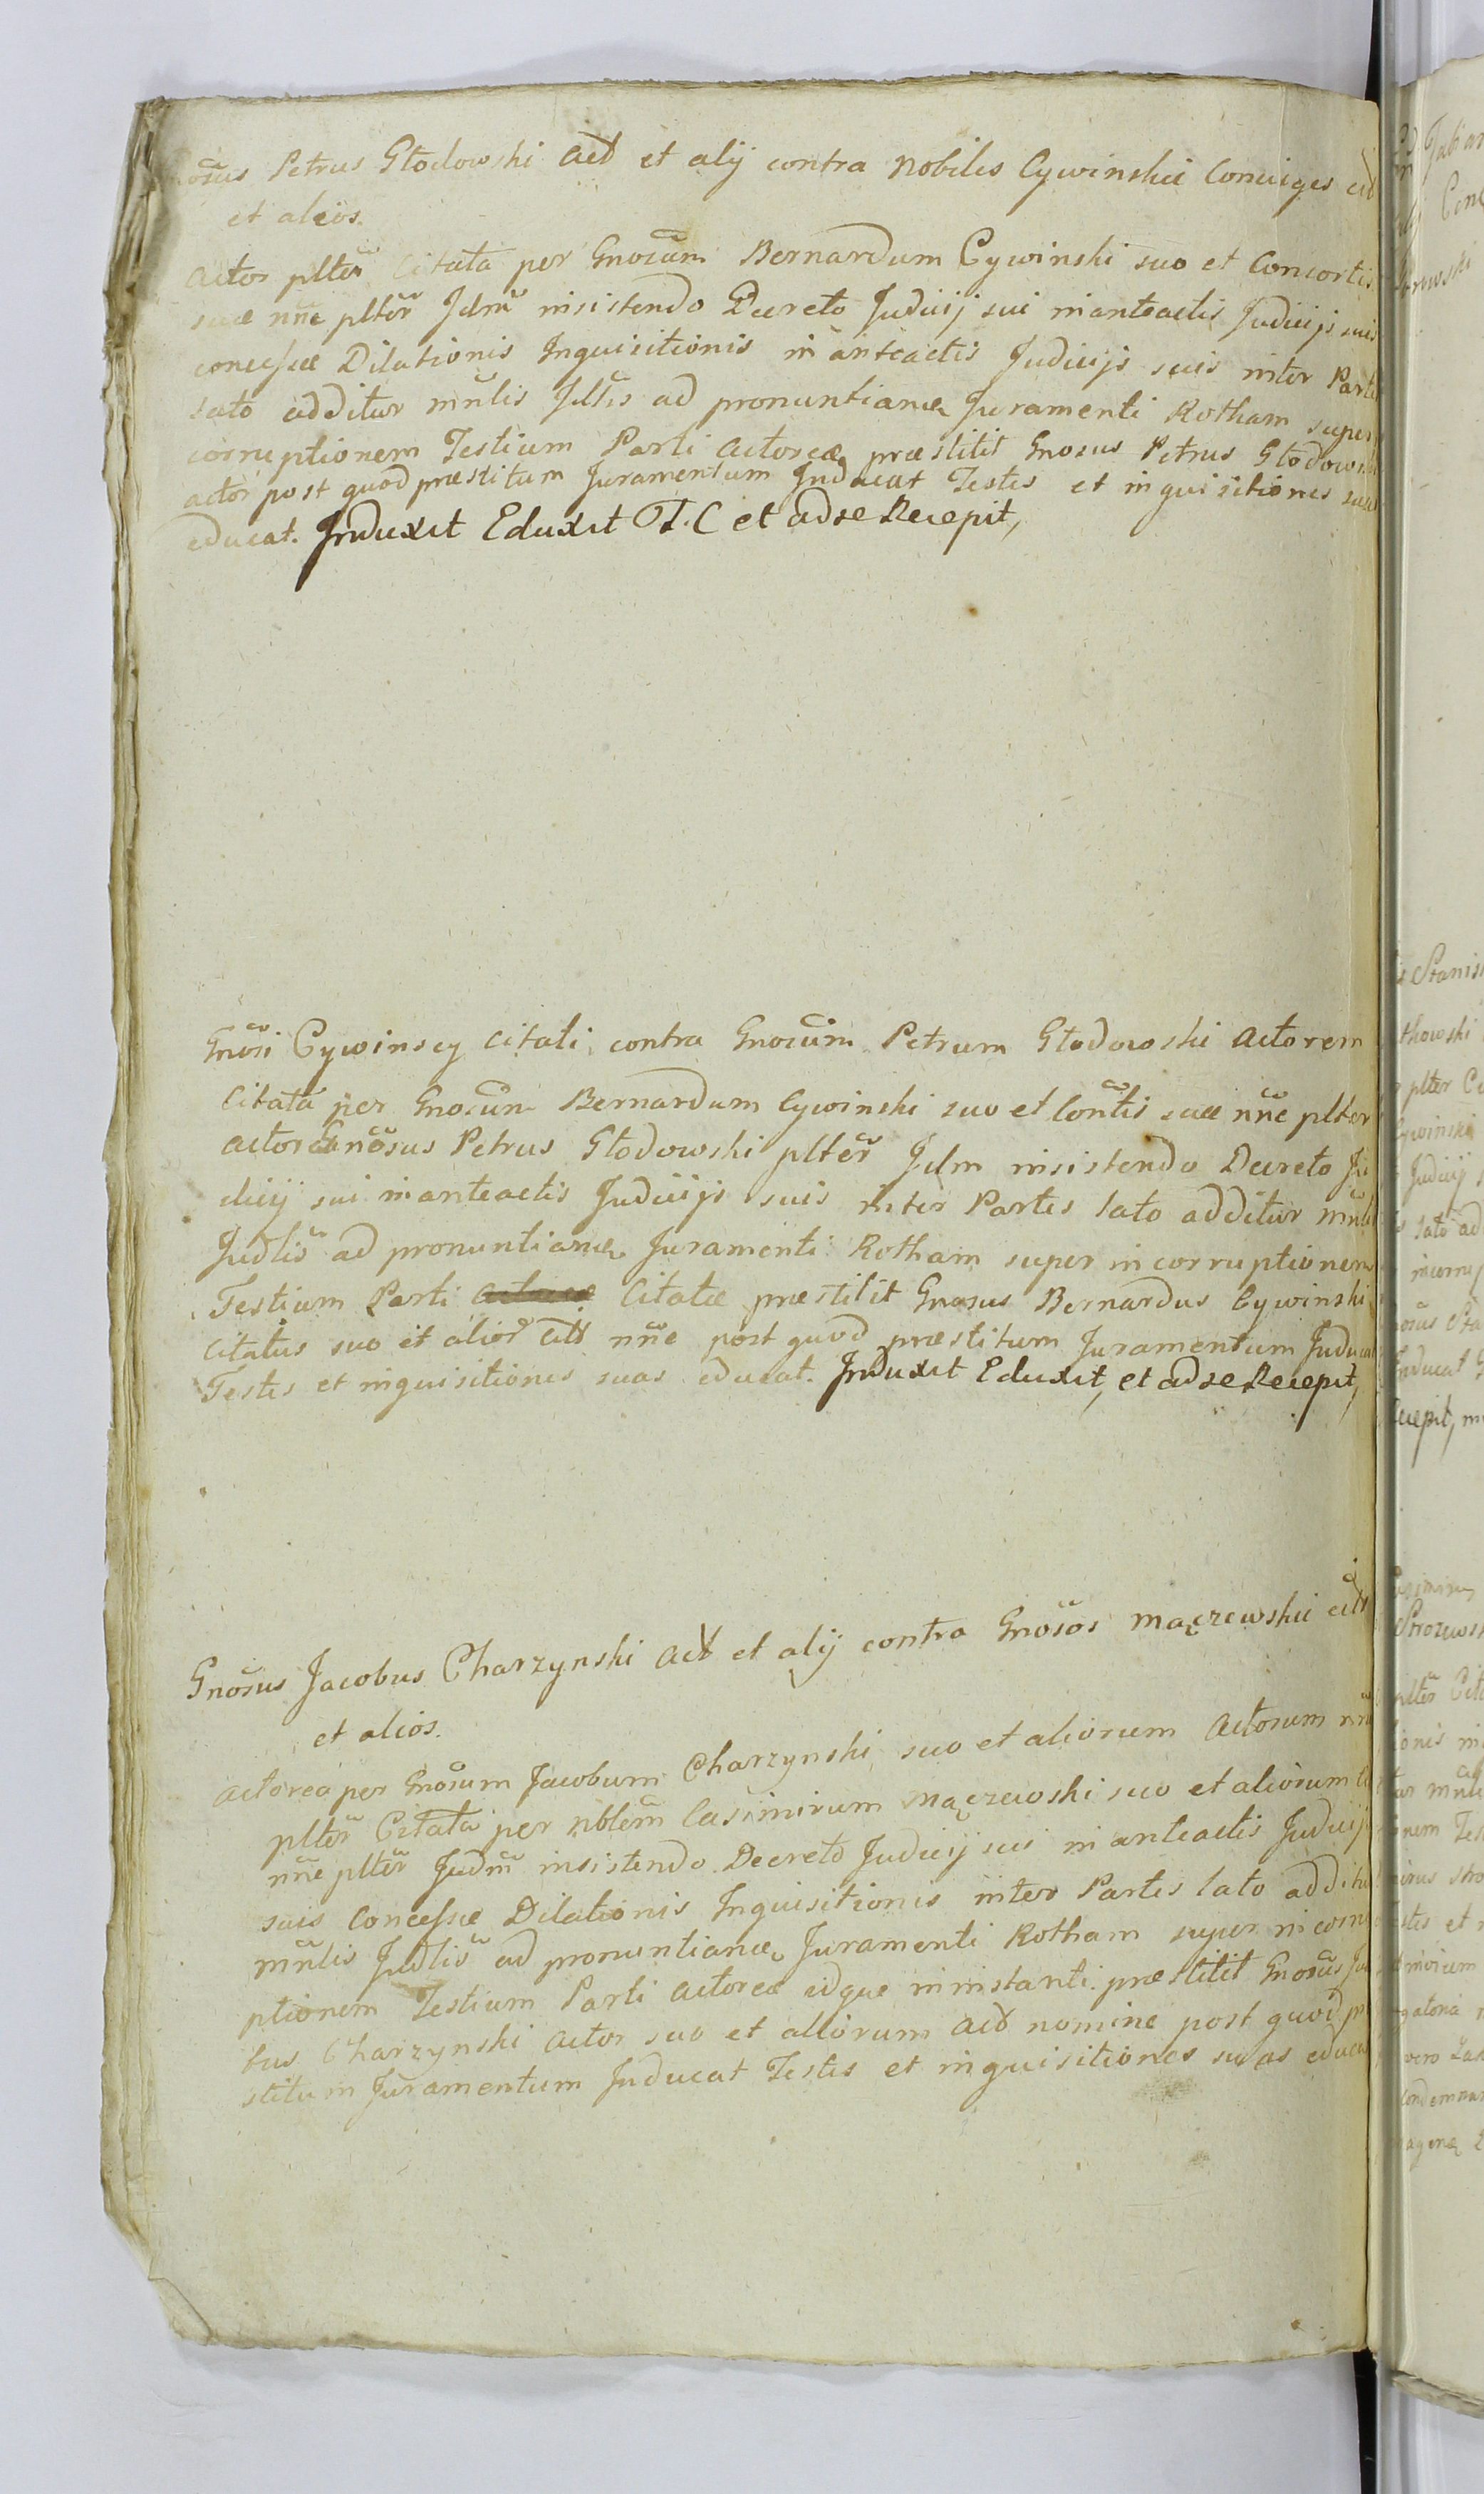 Gnosus Petrus Głodowski Act et alij contra Nobiles Cywinskie Coniuges cit
et alios.
Actor plter Citata per Gnosum Bernardum Cywinski suo et Consortis
suae nne plter Jdm insistendo Decreto Judicij sui in anteactis Judicijs suis
concessae Dilationis Inquisitionis in anteactis Judicijs suis inter Partes
lato additur mnlis Jdlis ad pronuntianą Juramenti Rotham super
corruptionem Testium Parti Actoreæ præstitit Gnosus Petrus Głodowski
actor post quod præstitum Juramentum Inducat Testes et inquisitiones suas
educat. Induxit Eduxit T. C et ad se Recepit,
Gnosi Cywinscy Citati contra Gnosum Petrum Głodowski Actorem
Citata per Gnosum Bernardum Cywinski suo et Contis suae nne plter
Actorea Gnosus Petrus Głodowski plter Jdm insistendo Decreto Ju
dicij sui in anteactis Judicijs suis inter Partes lato additur mnlis
Judlis ad pronuntianą Juramenti Rotham super incorruptionem
Testium Parti Actoreæ Citatæ præstitit Gnosus Bernardus Cywinski
Citatus suo et alior Citt nne post quod præstitum Juramentum Inducat
Testes et inquisitiones suas educat. Induxit Eduxit, et ad se Recepit,
Gnosus Jacobus Charzynski Act et alij contra Gnosos Mączewskie citt
et alios.
Actorea per Gnosum Jacobum Charzynski suo et aliorum Actorum nne
plter Citata per nblem Casimirum Mączewski suo et aliorum Ci
nne plter Judm insistendo Decreto Judicij sui in anteactis Judicijs
suis Concessæ Dilationis Inquisitionis inter Partes lato additur
mnlis Judlis ad pronuntianą Juramenti Rotham super incorru
ptionem Testium Parti Actoreæ idque in instanti præstitit Gnosus Jaco
bus Charzynski Actor suo et aliorum Act nomine post quod præ
stitum Juramentum Inducat Testes et inquisitiones suas educat